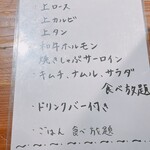 ・上ロース
・上カルビ
・上タン
・和牛ホルモン
・焼きしゃぶサーロイン
・キムチ、ナムル、サラダ
食べ放題
・ドリンクバー付き
・ごはん 食べ放題